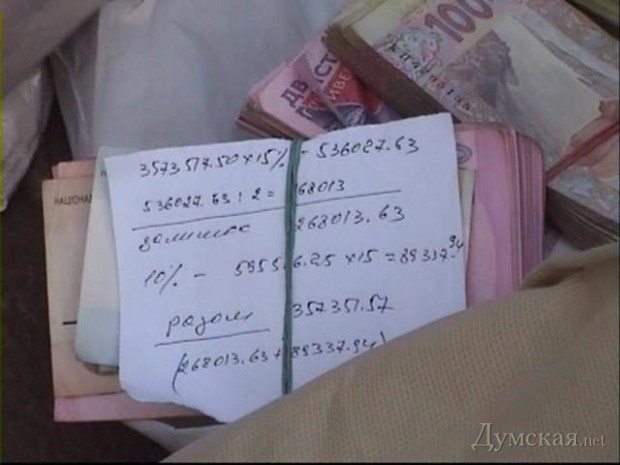 100
ДВ СТ
ГРИВЕ
НАЦІОНА
3573517.50 × 15% - 536027.63
536027.63 : 2 = 268013
залишка 268013.63
10% - 595586.25 × 15 = 89337.94
разом 357351.57
(268013.63 + 89337.94)
Думская.net